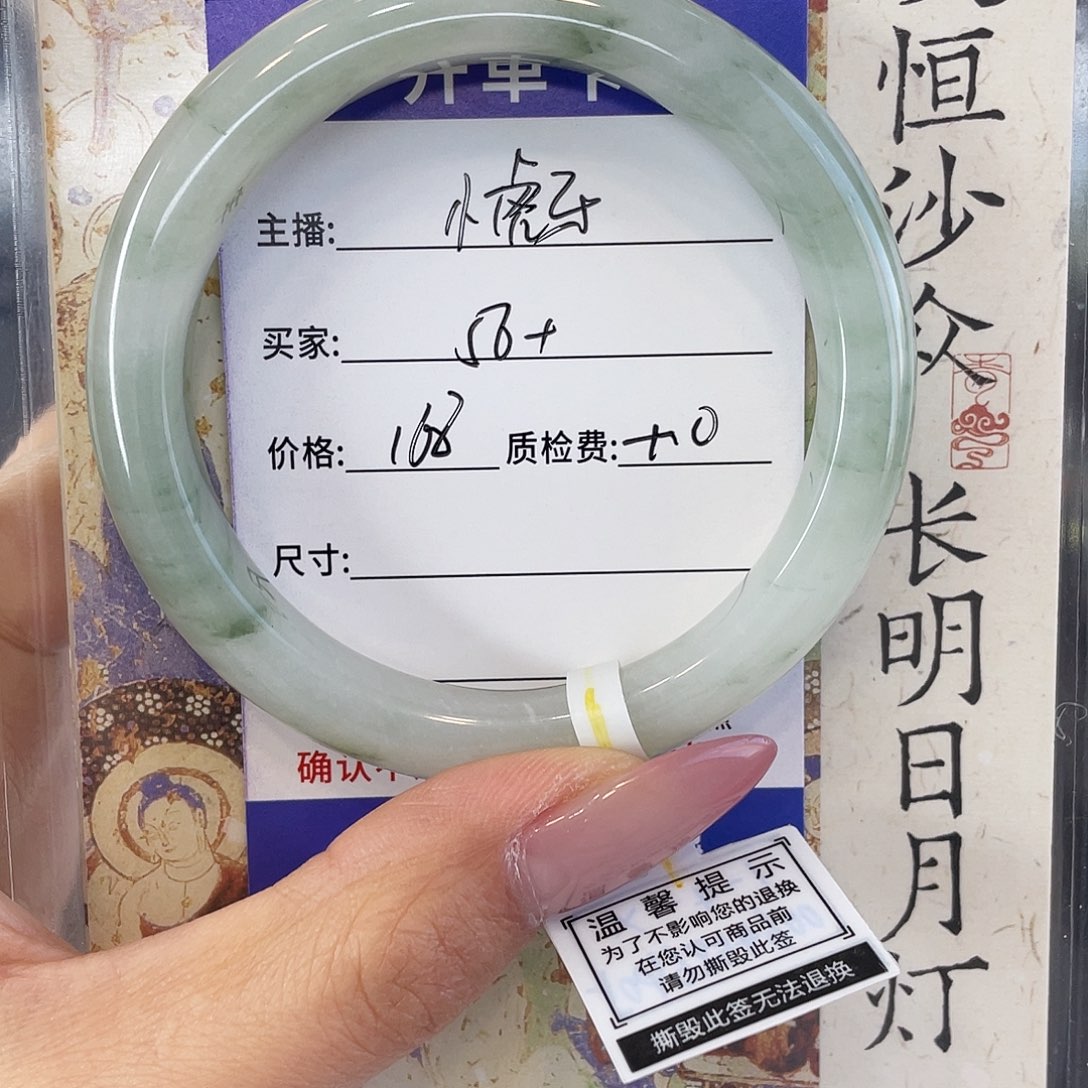 开单卡
主播:
买家: 56+
价格: 168 质检费: +10
尺寸:
确认
温馨提示
为了不影响您的退换
在您认可商品前
请勿撕毁此签
撕毁此签无法退换
恒沙众
长明日月灯